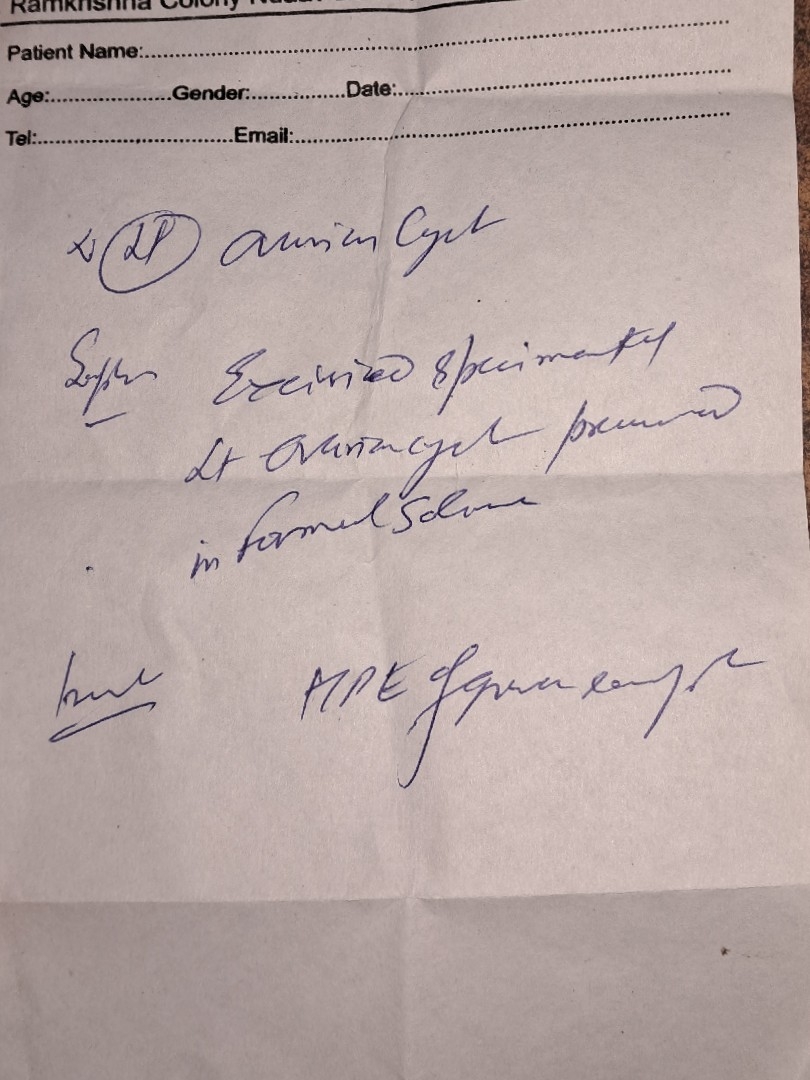 Ramkrishna Colony
Patient Name:
Age: Gender: Date:
Tel: Email:
Lt Ovarian Cyst
Excisized specimen of
Lt Ovarian cyst preserved
in Formal Saline
HPE of